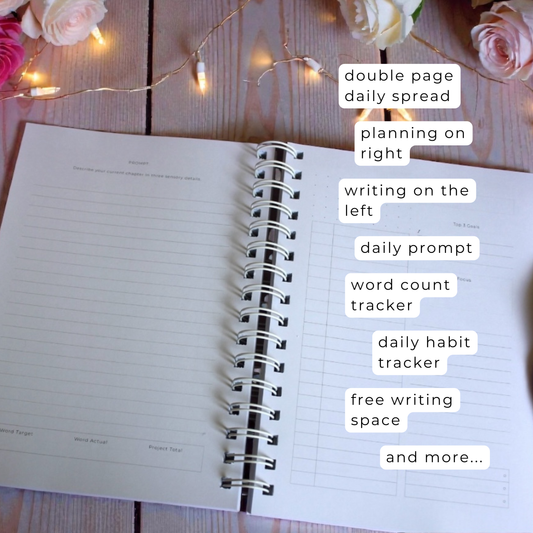 double page
daily spread
planning on
right
writing on the
left
daily prompt
word count
tracker
daily habit
tracker
free writing
space
and more...
PROMPT:
Describe your current
Top 3 Tasks
Word Target
Word Actual
Project Total